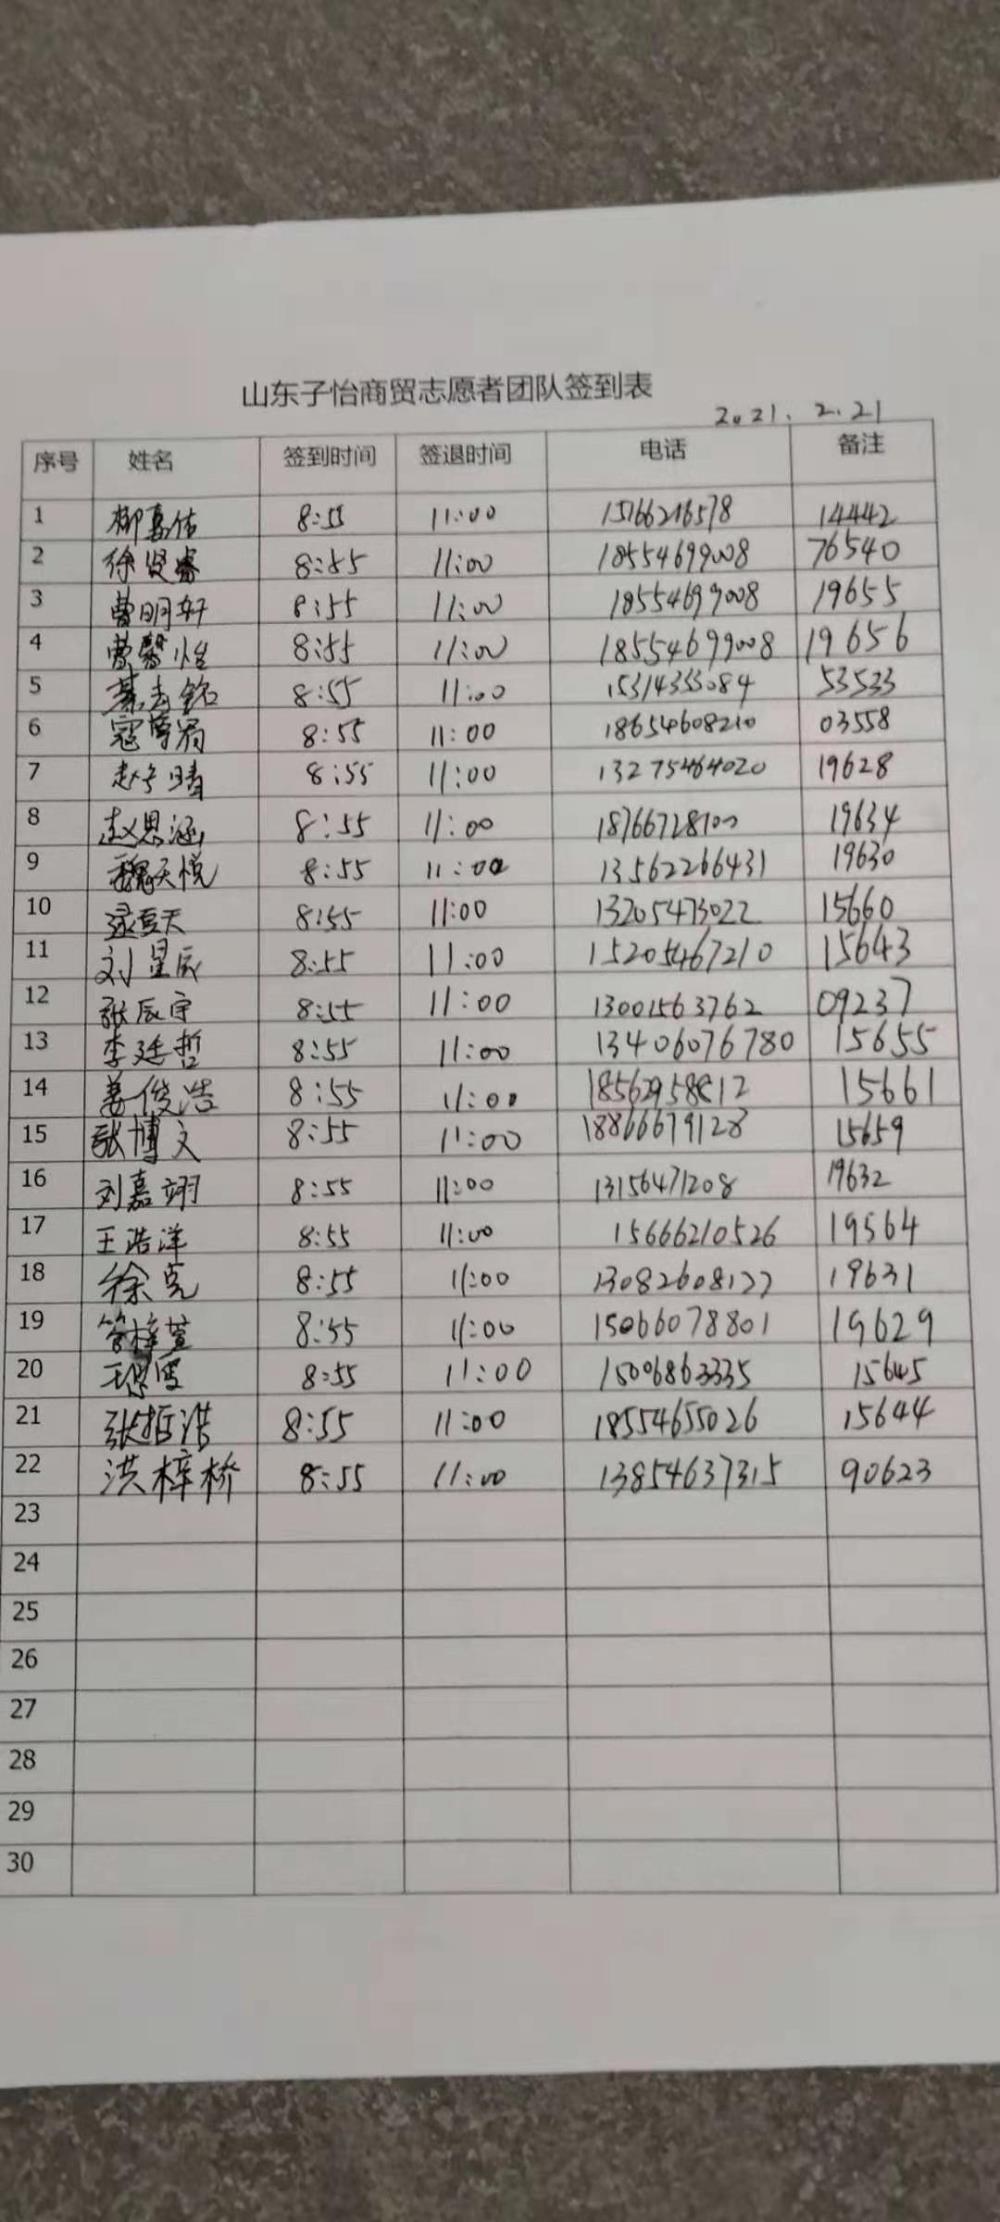 山东子怡商贸志愿者团队签到表
2021.2.21
序号 姓名 签到时间 签退时间 电话 备注
1 柳嘉佑 8:55 11:00 15166216578 14442
2 徐贤睿 8:55 11:00 18554699008 76540
3 曹明轩 8:55 11:00 18554699008 19655
4 曹馨怡 8:55 11:00 18554699008 19656
5 8:55 11:00 15314353084 53533
6 8:55 11:00 18654608210 03558
7 赵子晴 8:55 11:00 13275464020 19628
8 赵思涵 8:55 11:00 18766728100 19634
9 魏天悦 8:55 11:00 13562266431 19630
10 夏天 8:55 11:00 13205473022 15660
11 刘星辰 8:55 11:00 15205467210 15643
12 张辰宇 8:55 11:00 13001563762 09237
13 李廷哲 8:55 11:00 13406076780 15655
14 姜俊浩 8:55 11:00 18562958812 15661
15 张博文 8:55 11:00 18866679128 15659
16 刘嘉翊 8:55 11:00 13156471208 19632
17 王浩洋 8:55 11:00 15666210526 19564
18 徐克 8:55 11:00 13082608177 19631
19 管梓萱 8:55 11:00 15066078801 19629
20 8:55 11:00 15006863335 15645
21 张哲浩 8:55 11:00 18554655026 15644
22 洪梓桥 8:55 11:00 13854637315 90623
23
24
25
26
27
28
29
30